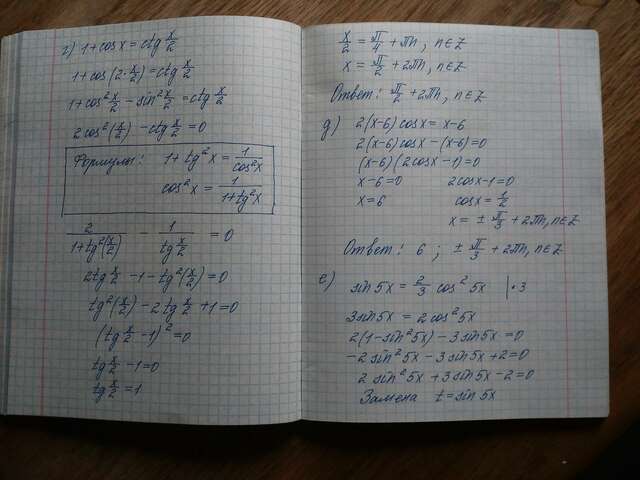 г) 1+cosx = ctg x/2
1+cos(2·x/2) = ctg x/2
1+cos² x/2 - sin² x/2 = ctg x/2
2cos²(x/2) - ctg x/2 = 0
Формулы: 1+tg²x = 1/cos²x
cos²x = 1/(1+tg²x)
2/(1+tg²(x/2)) - 1/(tg x/2) = 0
2tg x/2 - 1 - tg²(x/2) = 0
tg²(x/2) - 2tg x/2 + 1 = 0
(tg x/2 - 1)² = 0
tg x/2 - 1 = 0
tg x/2 = 1
x/2 = π/4 + πn, n∈Z
x = π/2 + 2πn, n∈Z
Ответ: π/2 + 2πn, n∈Z
д) 2(x-6)cosx = x-6
2(x-6)cosx - (x-6) = 0
(x-6)(2cosx - 1) = 0
x-6=0 2cosx-1=0
x=6 cosx = 1/2
x = ± π/3 + 2πn, n∈Z
Ответ: 6; ± π/3 + 2πn, n∈Z
е) sin5x = 2/3 cos²5x |·3
3sin5x = 2cos²5x
2(1-sin²5x) - 3sin5x = 0
-2sin²5x - 3sin5x + 2 = 0
2sin²5x + 3sin5x - 2 = 0
Замена t = sin5x